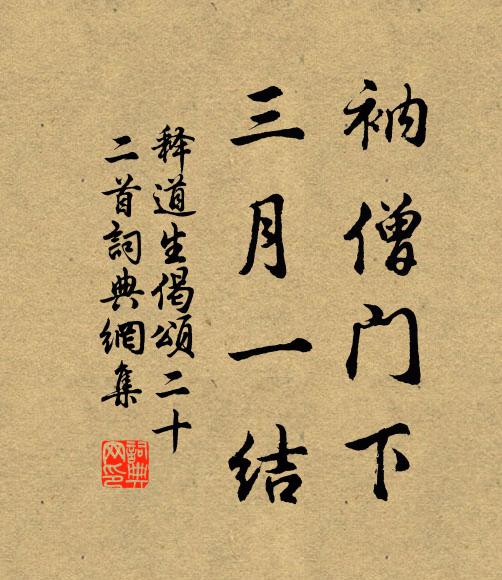 衲僧门下
三月一结
释道生偈頌二十
二首詞典網集
詞典網印